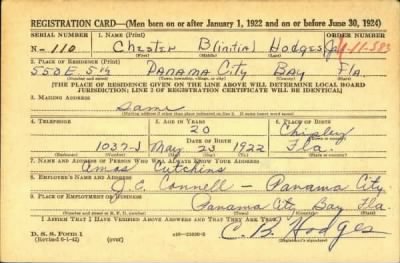 REGISTRATION CARD—(Men born on or after January 1, 1922 and on or before June 30, 1924)
SERIAL NUMBER 1. NAME (Print) ORDER NUMBER
N- 110 Chester B(initial) Hodges Jr 11-583
(First) (Middle) (Last)
2. PLACE OF RESIDENCE (Print)
550 E. 5th Panama City Bay Fla.
(Number and street) (Town, township, village, or city) (County) (State)
[THE PLACE OF RESIDENCE GIVEN ON THE LINE ABOVE WILL DETERMINE LOCAL BOARD
JURISDICTION; LINE 2 OF REGISTRATION CERTIFICATE WILL BE IDENTICAL]
3. MAILING ADDRESS
Same
[Mailing address if other than place indicated on line 2. If same insert word same]
4. TELEPHONE 5. AGE IN YEARS 6. PLACE OF BIRTH
20 Chipley
DATE OF BIRTH
1037-J May 23 1922 Fla.
7. NAME AND ADDRESS OF PERSON WHO WILL ALWAYS KNOW YOUR ADDRESS
Amos Cutchins
8. EMPLOYER'S NAME AND ADDRESS
J. E. Connell — Panama City
9. PLACE OF EMPLOYMENT OR BUSINESS
Panama City Bay Fla.
(Number and street or R. F. D. number) (Town) (County) (State)
I AFFIRM THAT I HAVE VERIFIED ABOVE ANSWERS AND THAT THEY ARE TRUE.
D. S. S. Form 1
(Revised 6-1-42) (over) C. B. Hodges
(Registrant's signature)